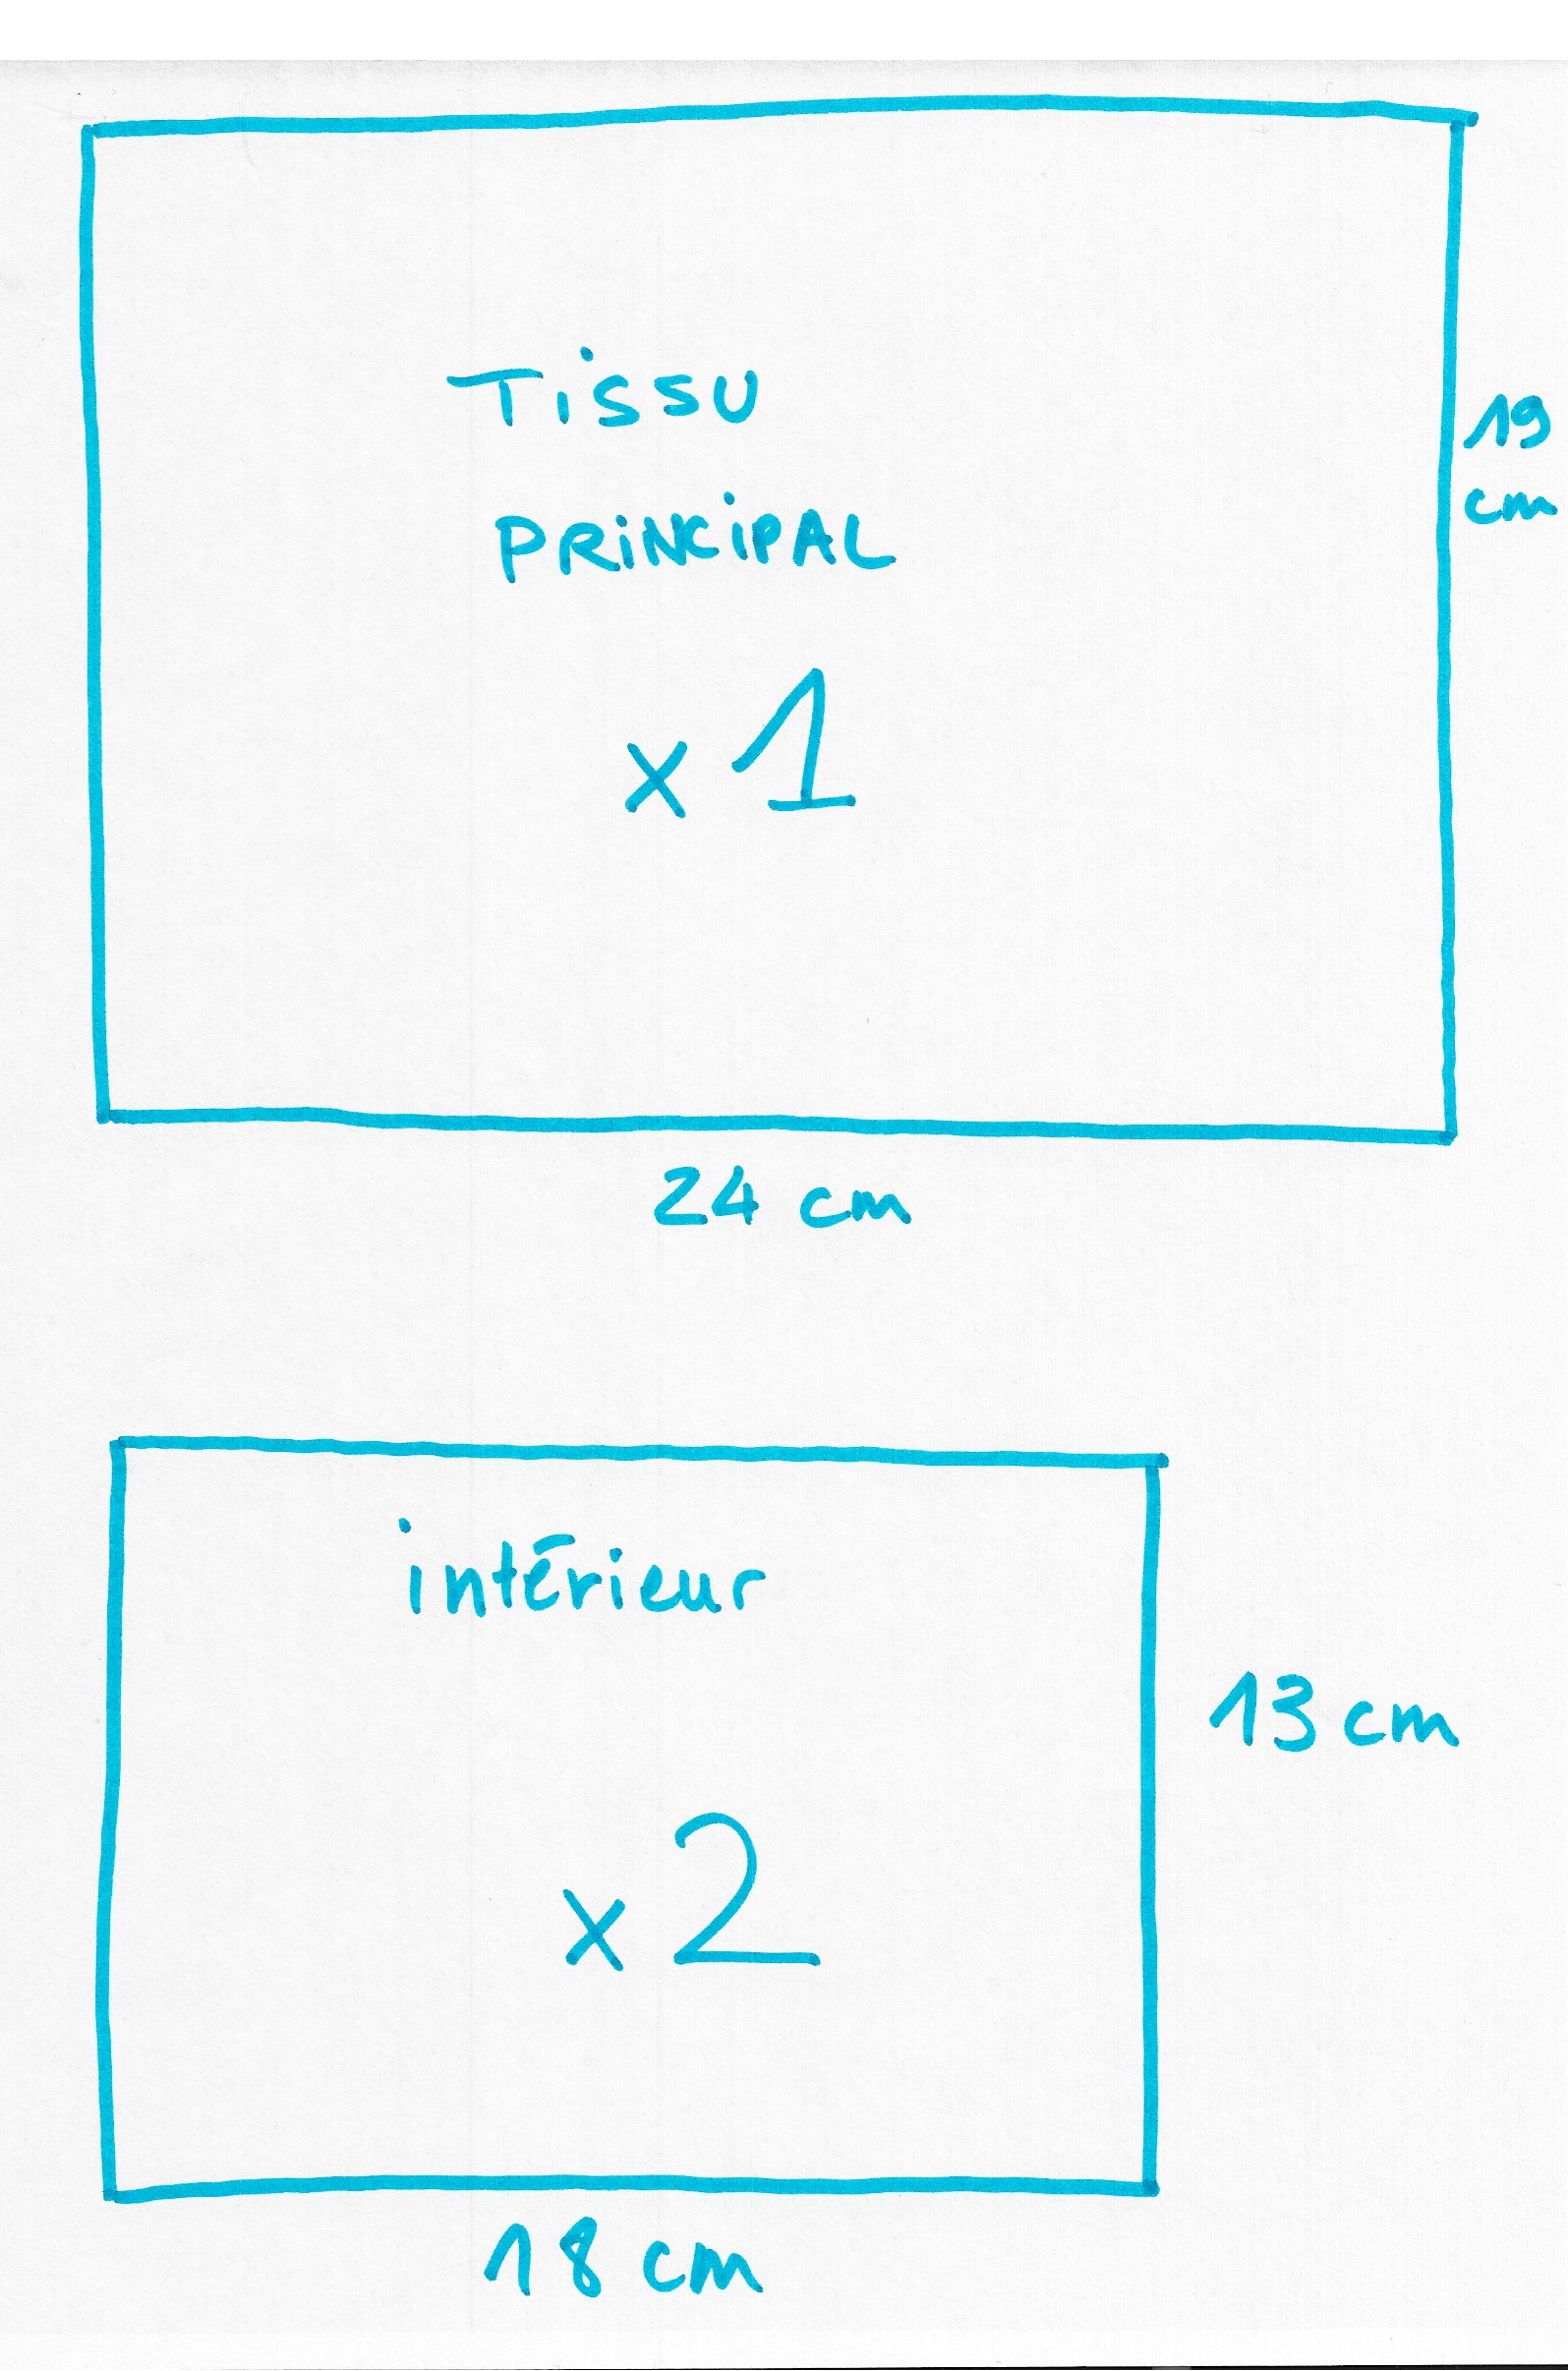 Tissu
PRiNCiPAL
x 1
19
cm
24 cm
intérieur
13 cm
x 2
18 cm